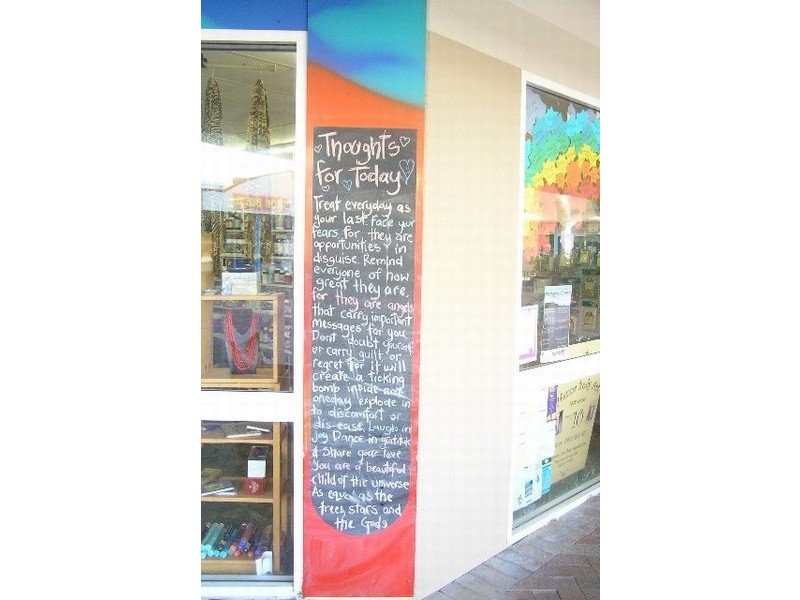 Thoughts
for Today
Treat everyday as
your last. Face your
fears for, they are
opportunities in
disguise. Remind
everyone of how
great they are,
for they are angels
that carry important
messages for you
Dont doubt yourself
or carry guilt or
regret for it will
create a ticking
bomb inside and
oneday explode in
to discomfort or
dis-ease. Laugh in
joy Dance in gratitude
& share your love
You are a beautiful
child of the universe
As equal as the
trees, stars and
the Gods